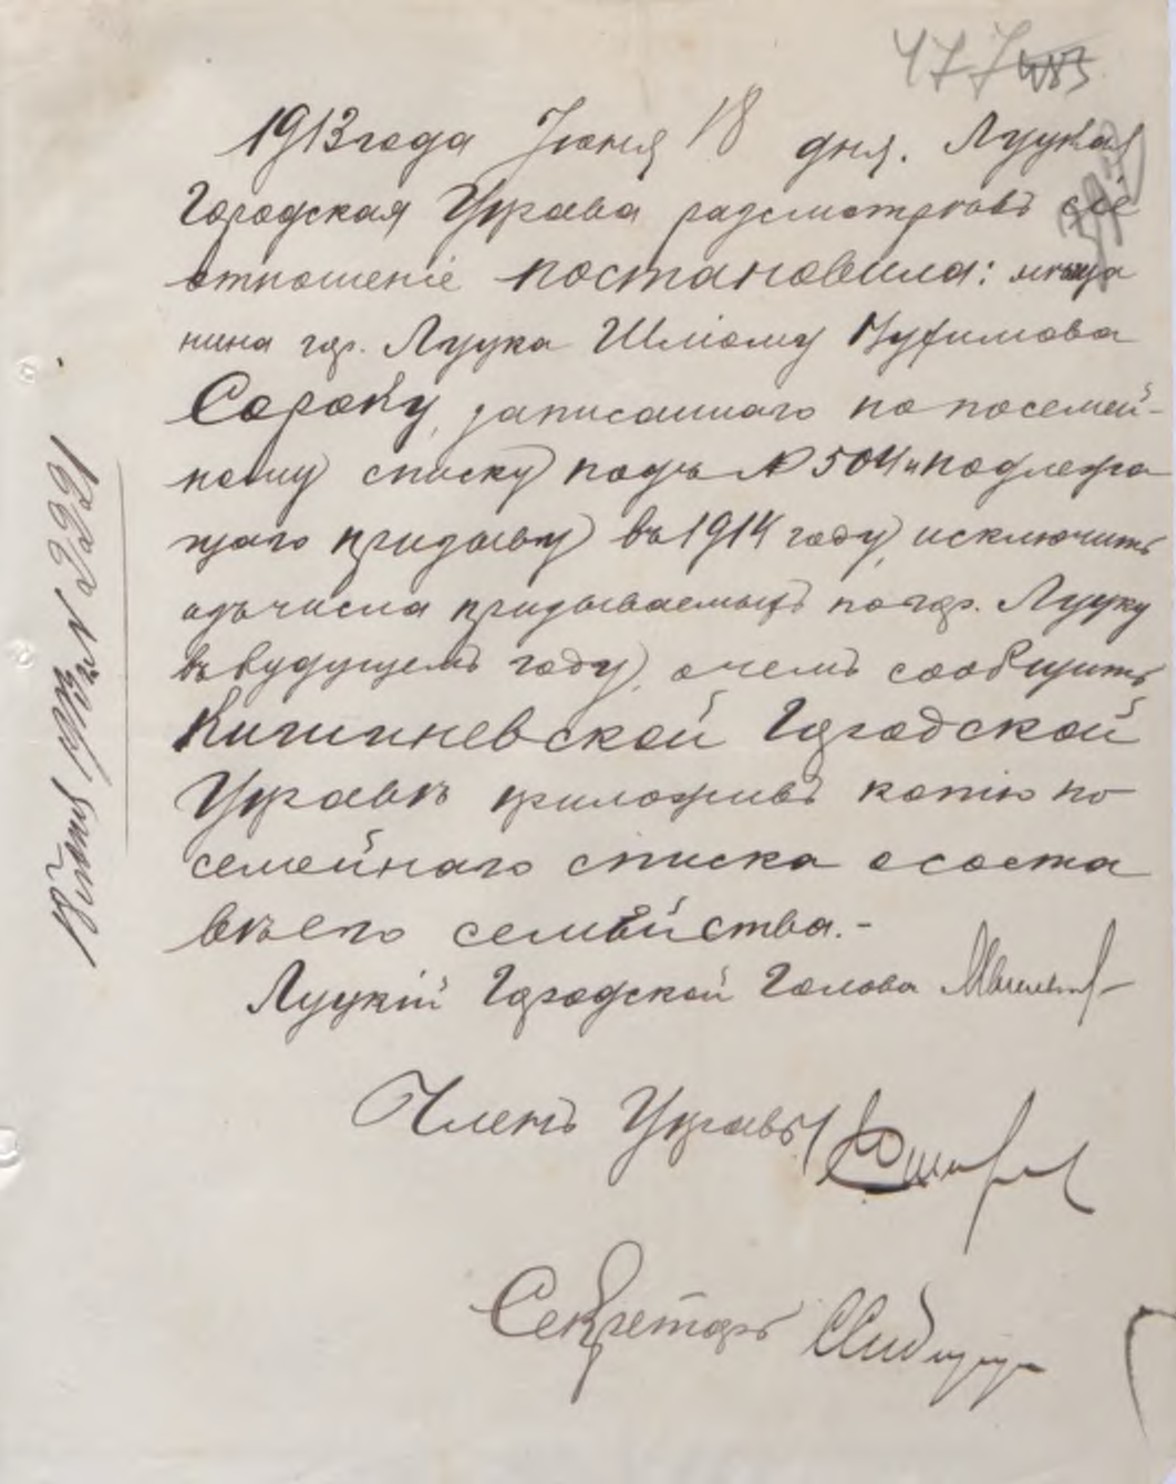 477 483
1913 года Іюня 18 дня. Луцкая
Городская Управа разсмотревъ сіе
отношеніе постановила: меща
нина гор. Луцка Шлиому Нухимова
Сороку, записаннаго по посемей-
ному списку подъ № 504 и подлежа
щаго призыву въ 1914 году, исключить
изъ числа призываемыхъ по гор. Луцку
въ будущемъ году, о чемъ сообщить
Кишиневской Городской
Управѣ приложивъ копію по
семейнаго списка о соста
вѣ его семейства.-
Луцкій Городской Голова
Членъ Управы
Секретарь
18 Іюня 1913 г. № 2221